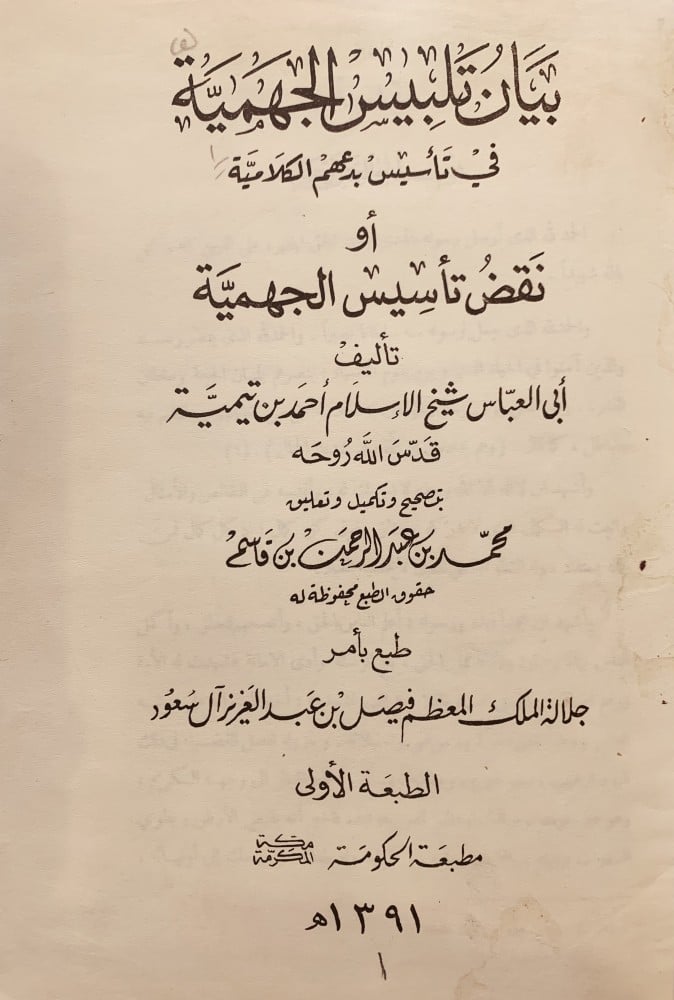 بَيَانُ تَلبِيسِ الجَهَمِيَّة
فِي تَأسيس بدعهم الكلاميَّة
أو
نَقضُ تأسِيسِ الجهميَّة
تأليف
أبى العبّاس شيخ الإسلام أحمد بن تيميَّة
قدّسَ اللَّه رُوحَه
بتصحيح وتكميل وتعليق
محمّد بن عبد الرحمن بن قاسم
حقوق الطبع محفوظة له
طبع بأمر
جلالة الملك المعظم فيصل بن عبد العزيز آل سعُود
الطبعَة الأولى
مطبعَة الحكومة مكة المكرمة
١٣٩١ هـ
١